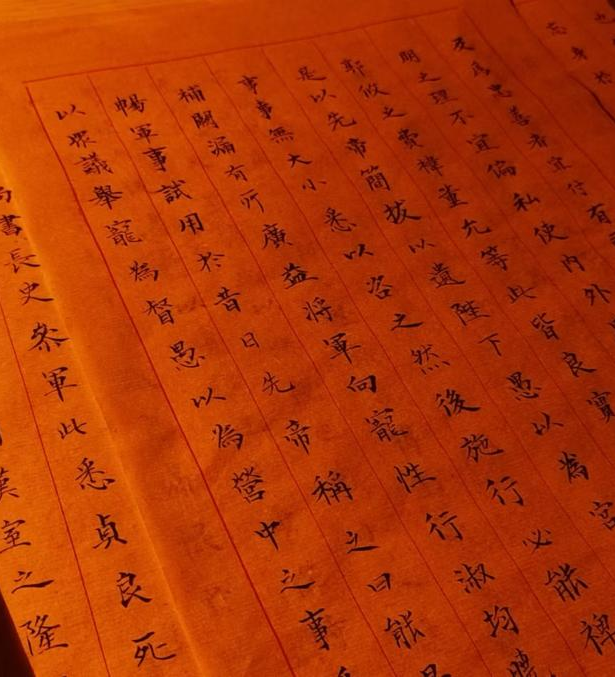 也
忘身於
及為忠善者宜付有
明之理不宜偏私使內外
郭攸之費禕董允等此皆良實
是以先帝簡拔以遺陛下愚以為宮
事事無大小悉以咨之然後施行必能裨
補闕漏有所廣益將軍向寵性行淑均曉
暢軍事試用於昔日先帝稱之曰能是
以眾議舉寵為督愚以為營中之事
尚書長史參軍此悉貞良死
漢室之隆